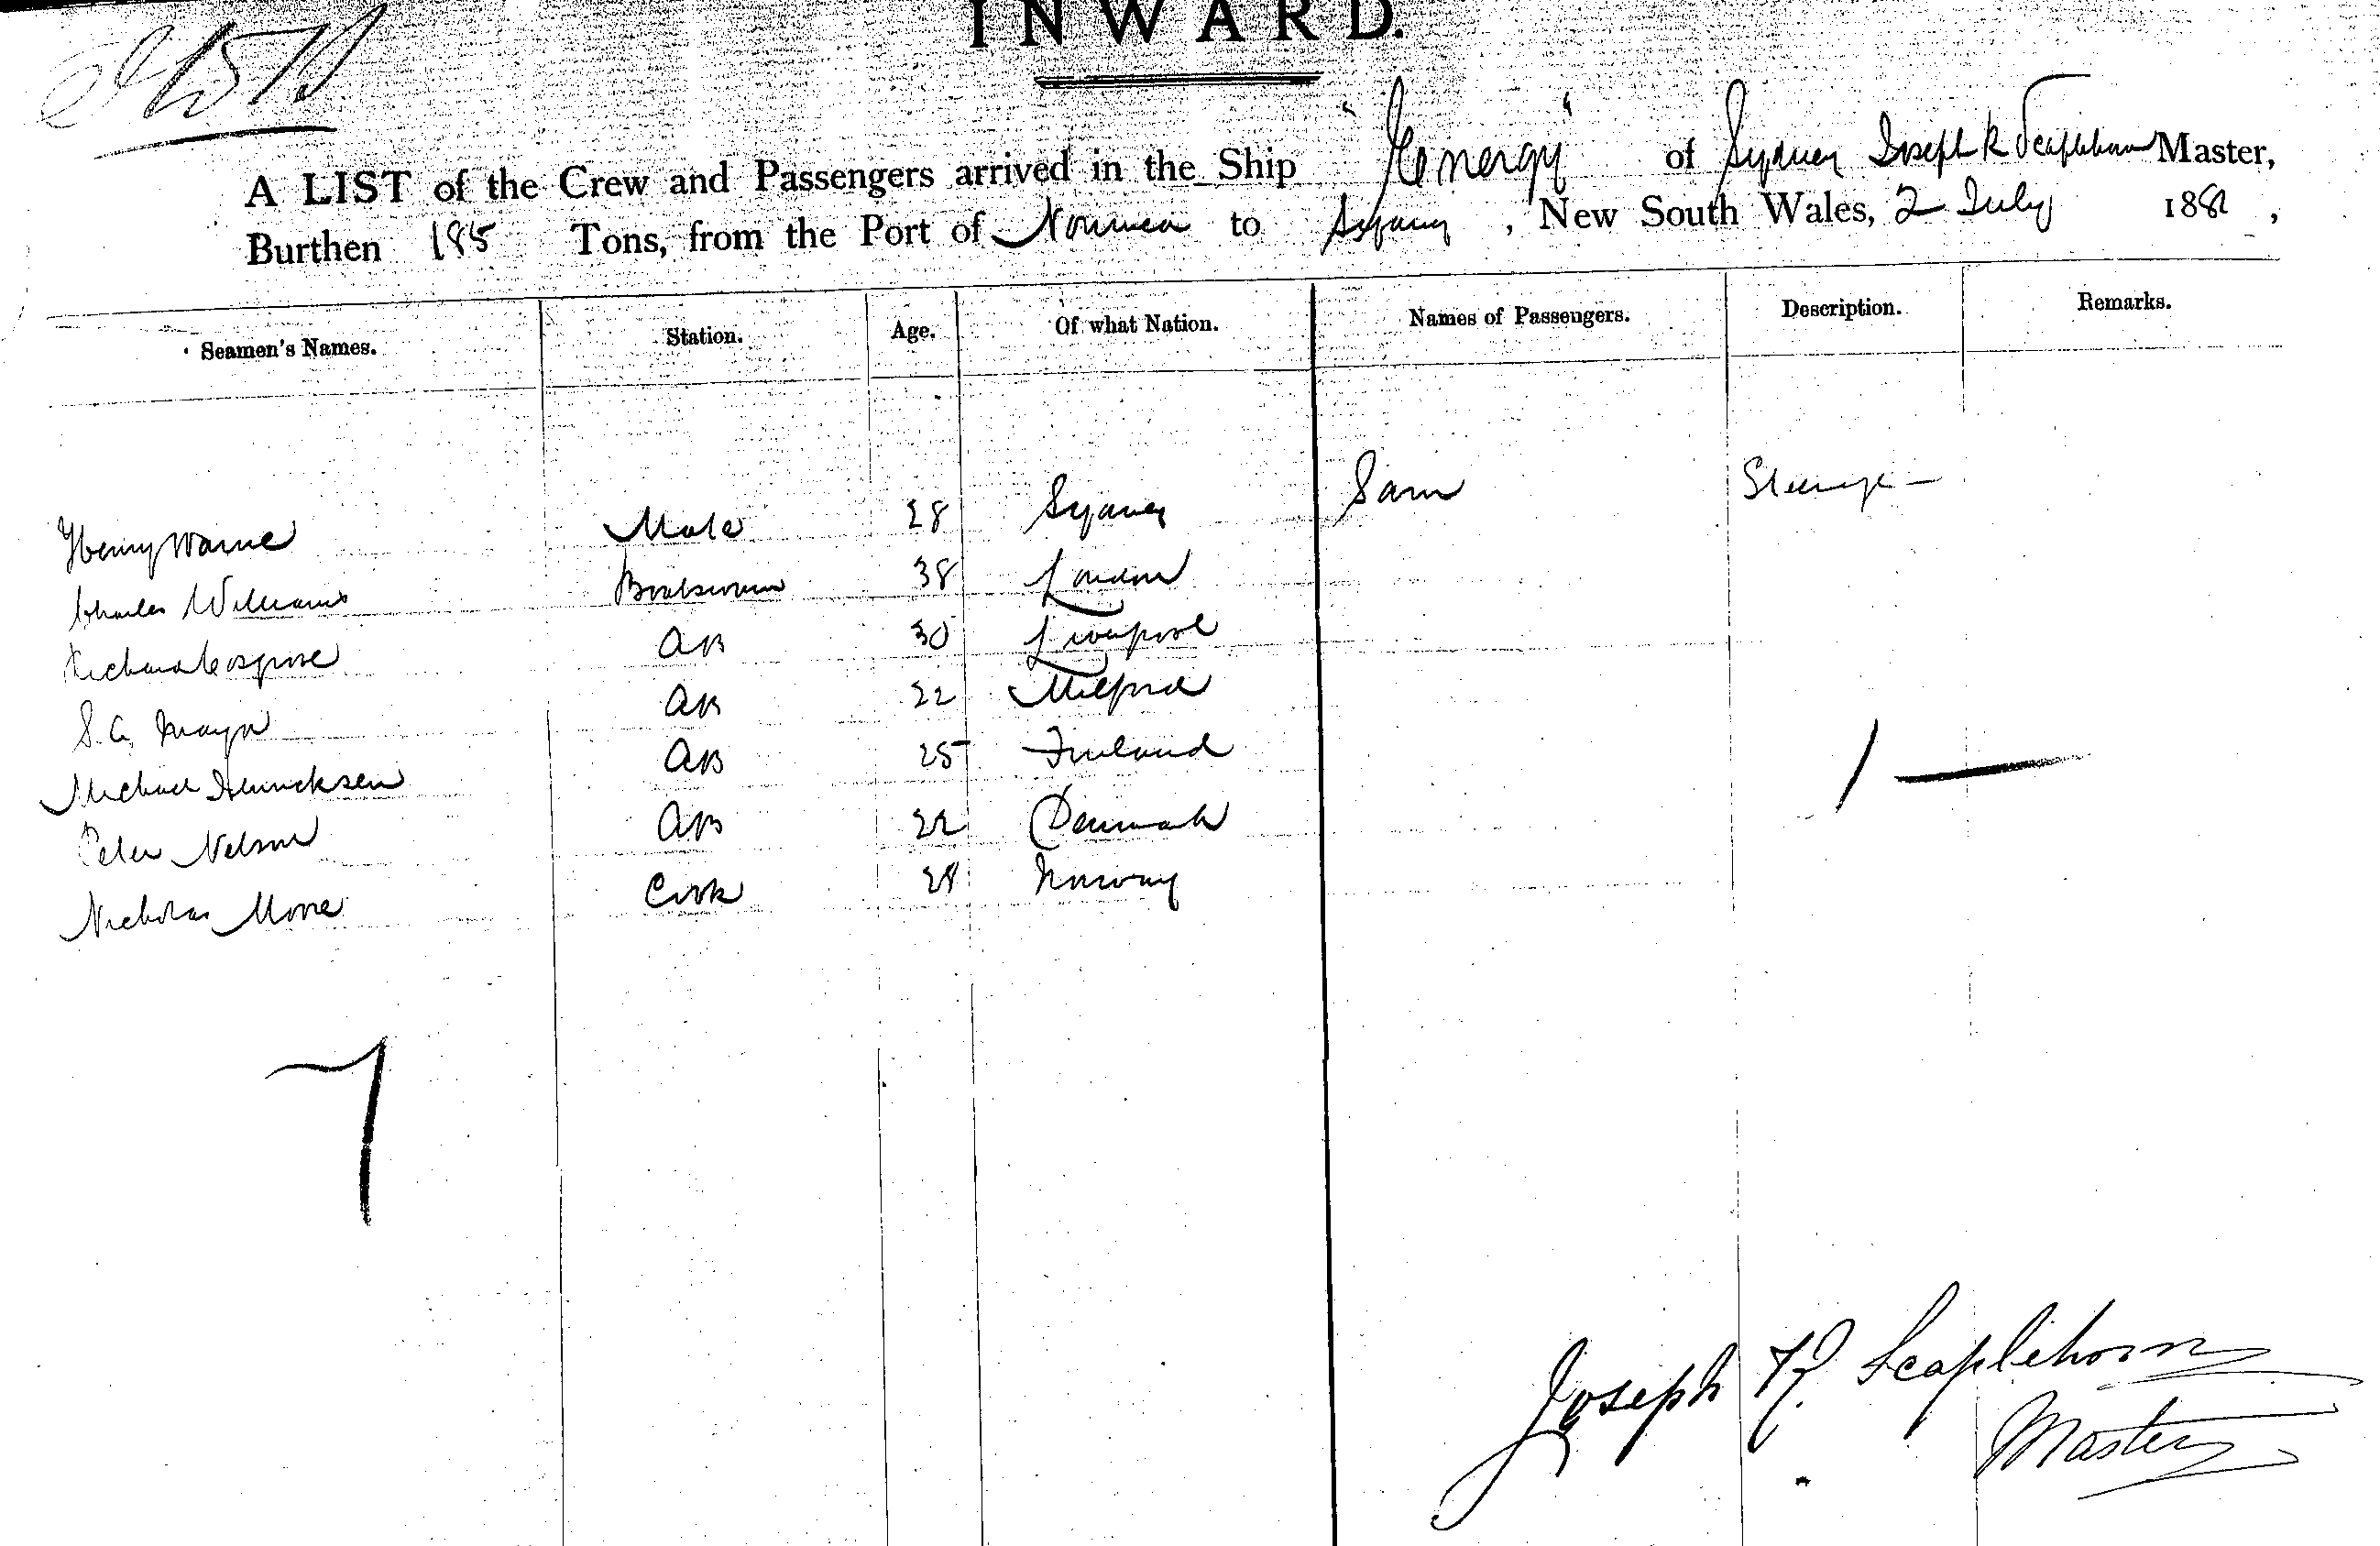 INWARD.
A LIST of the Crew and Passengers arrived in the Ship "Energy" of Sydney Joseph R Scaplehorn Master,
Burthen 185 Tons, from the Port of Noumea to Sydney, New South Wales, 2 July 1881,
Seamen's Names. Station. Age. Of what Nation. Names of Passengers. Description. Remarks.
Henry Warne Mate 28 Sydney Sam Steerage —
Charles Williams Boatswain 38 London
Richard Cosgrove AB 30 Liverpool
S. A. Mayor AB 22 Milford
Michael AB 25 Finland
Peter Nelson AB 22 Denmark
1 —
Nicholas Moore Cook 28 Norway
7
Joseph R. Scaplehorn
Master